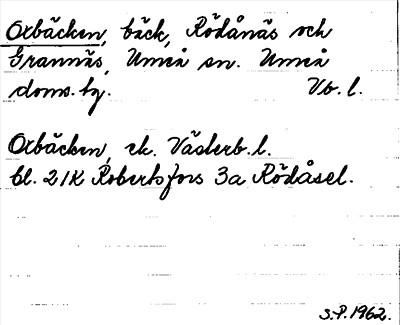 Oxbäcken, bäck, Rödånäs och
Grannäs, Umeå sn. Umeå
doms. hg. Vb. l.
Oxbäcken, ek. Västerb. l.
bl. 21K Robertsfors 3a Rödåsel.
S.P. 1962.